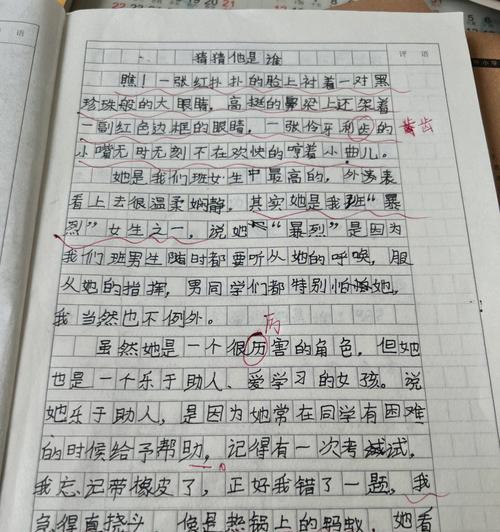 猜猜他是谁
评语
瞧！一张红扑扑的脸上衬着一对黑
珍珠般的大眼睛，高挺的鼻梁上还架着
一副红色边框的眼睛，一张伶牙利齿的 齿
小嘴无时无刻不在欢快的哼着小曲儿。
她是我们班女生中最高的，外表
看上去很温柔娴静，其实她是我班“暴
烈”女生之一，说她“暴烈”是因为
我们班男生随时都要听从她的呼唤，服
从她的指挥，男同学们都特别怕她，
我当然也不例外。
厉
虽然她是一个很厉害的角色，但她
也是一个乐于助人、爱学习的女孩。说
她乐于助人，是因为她常在同学有困难
的时候给予帮助，记得有一次考试，
我忘记带橡皮了，正好我错了一题，我
急得直挠头，像是热锅上的蚂蚁，她看